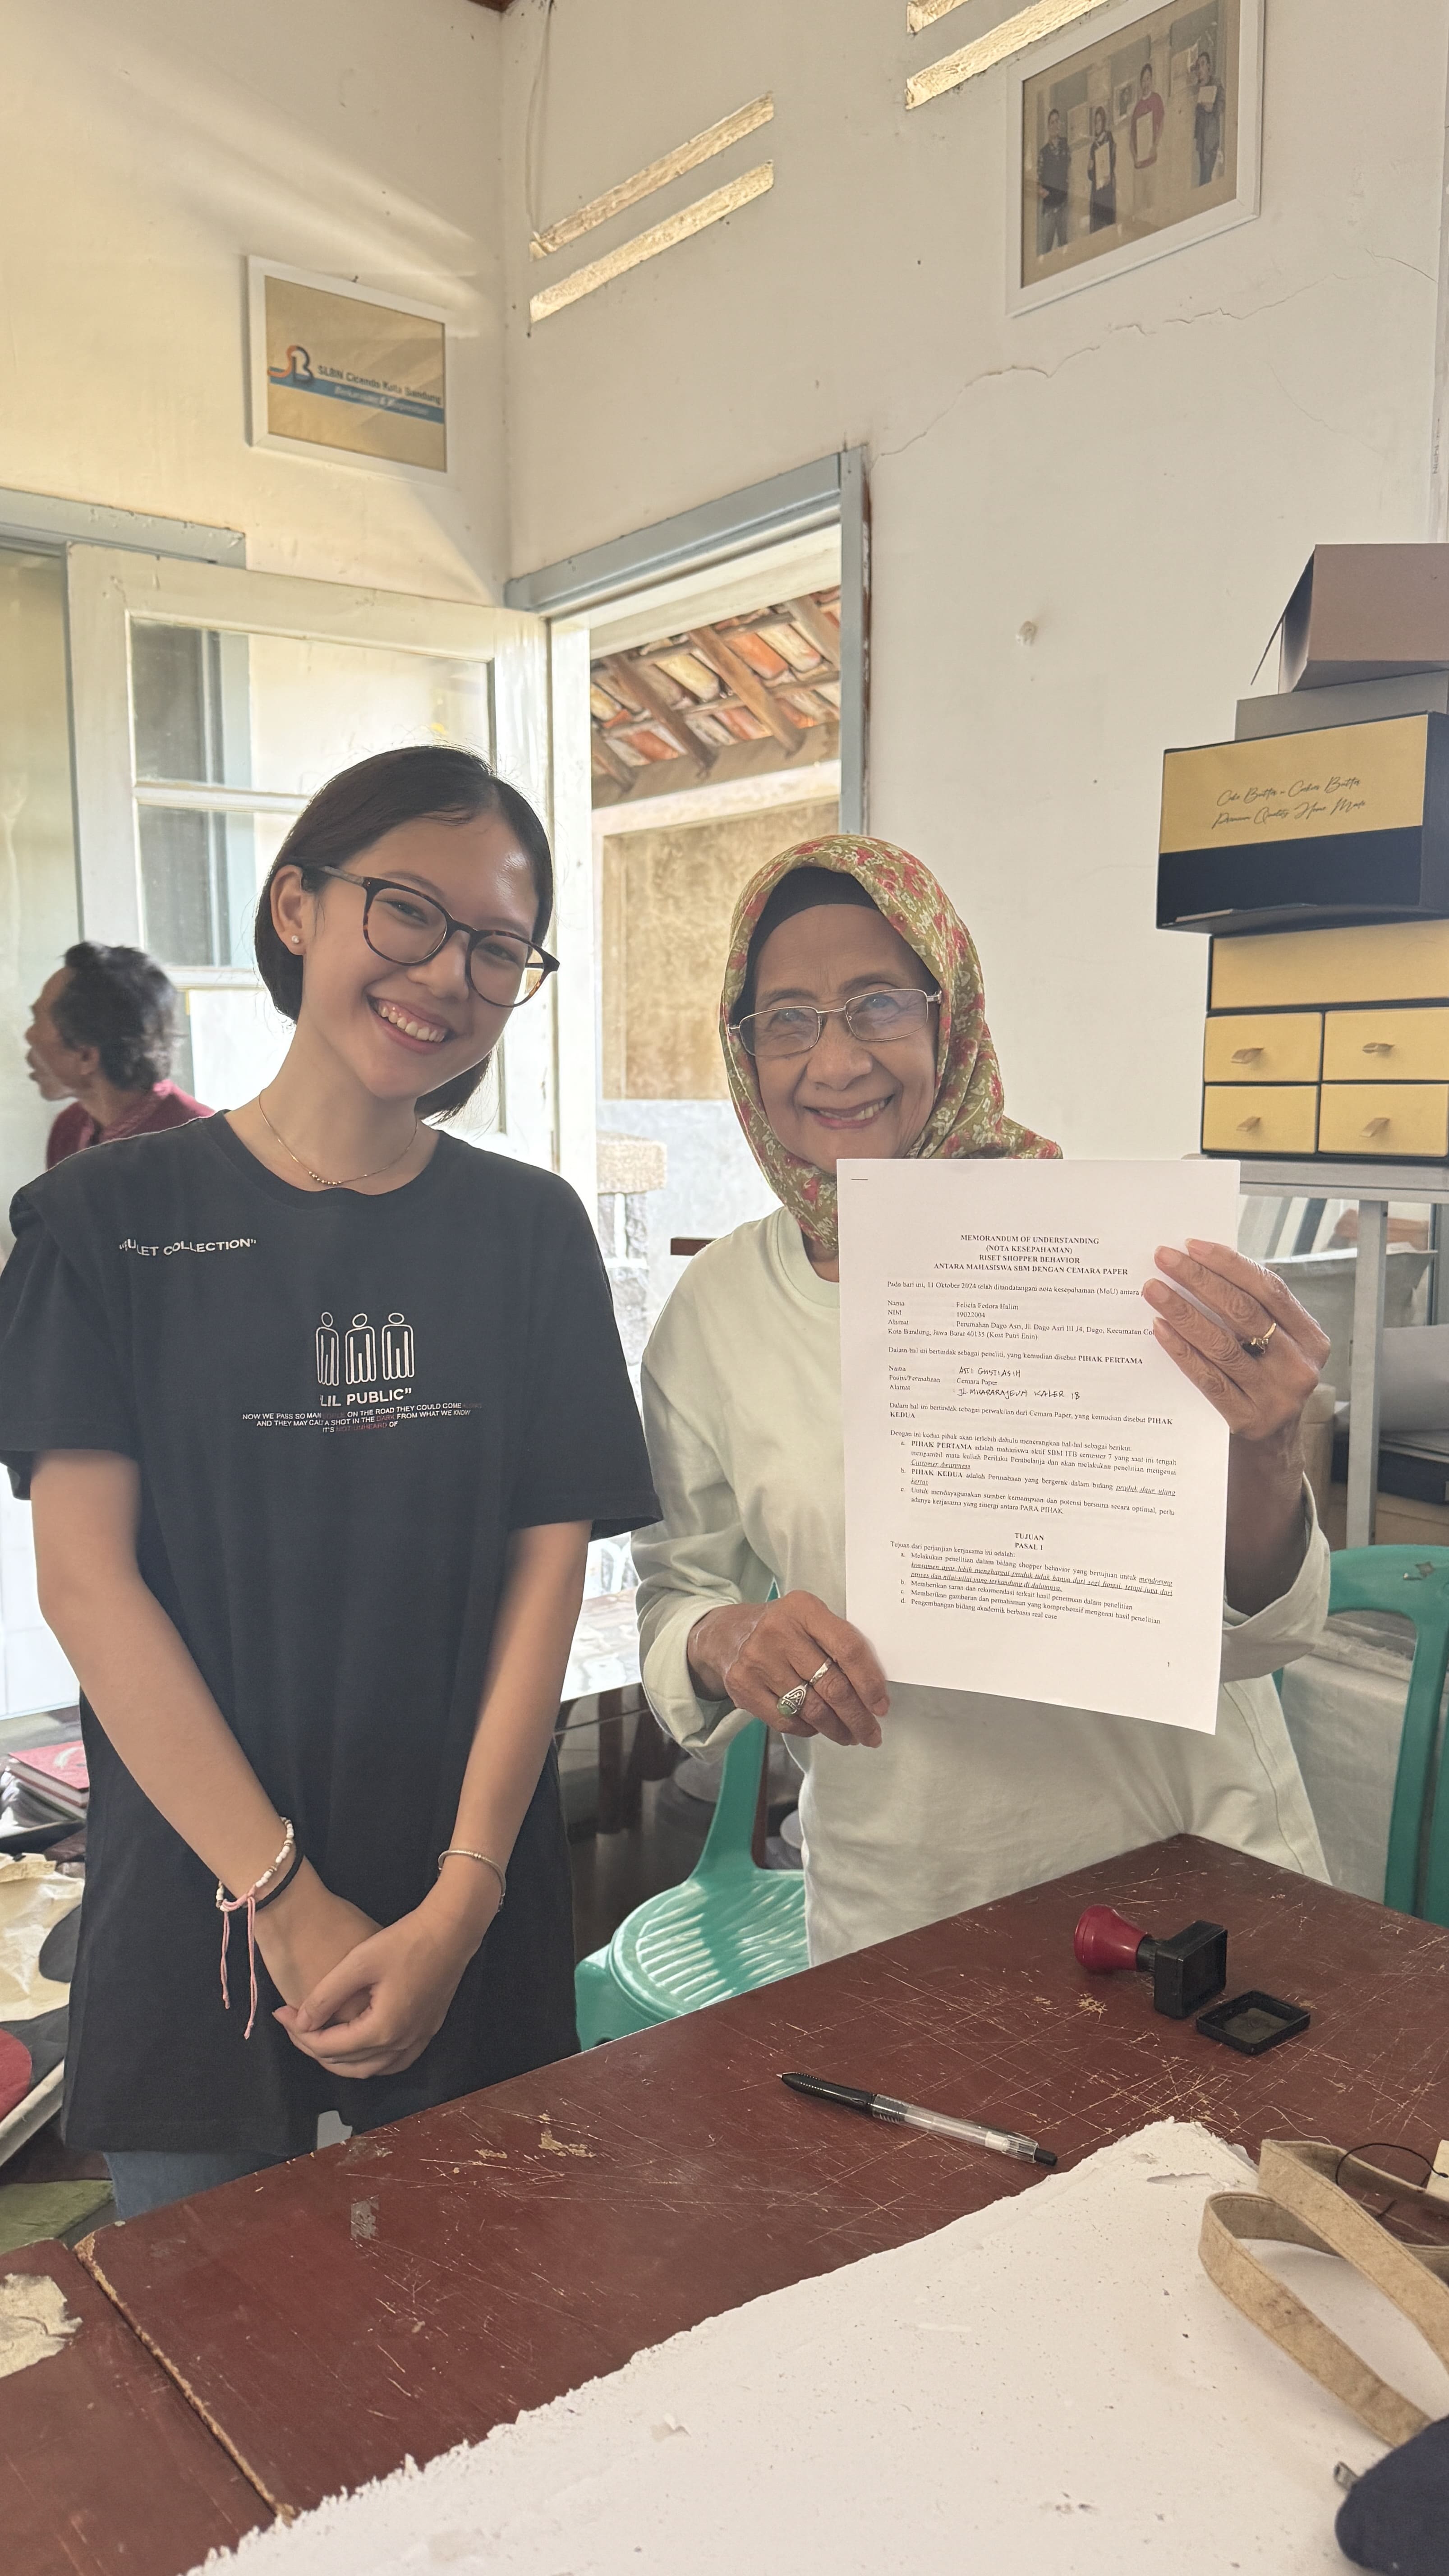 SLBN Cicendo Kota Bandung
Cake Butter - Cookies Butter
Premium Quality Home Made
COLLECTION"
LIL PUBLIC"
NOW WE PASS SO MAN ON THE ROAD THEY COULD COME
AND THEY MAY CALL A SHOT IN THE DARK FROM WHAT WE KNOW
IT'S NOT UNHEARD OF
MEMORANDUM OF UNDERSTANDING
(NOTA KESEPAHAMAN)
RISET SHOPPER BEHAVIOR
ANTARA MAHASISWA SBM DENGAN CEMARA PAPER
Pada hari ini, 11 Oktober 2024 telah ditandatangani nota kesepahaman (MoU) antara
Nama : Felicia Fedora Halim
NIM : 19022004
Alamat : Perumahan Dago Asri, Jl. Dago Asri III J4, Dago, Kecamatan
Kota Bandung, Jawa Barat 40135 (Kost Putri Enin)
Dalam hal ini bertindak sebagai peneliti, yang kemudian disebut PIHAK PERTAMA
Nama : ASTI GUSTIASIH
Posisi/Perusahaan : Cemara Paper
Alamat : JL. MUARARAJEUN KALER 18
Dalam hal ini bertindak sebagai perwakilan dari Cemara Paper, yang kemudian disebut PIHAK
KEDUA
Dengan ini kedua pihak akan terlebih dahulu menerangkan hal-hal sebagai berikut:
a. PIHAK PERTAMA adalah mahasiswa aktif SBM ITB semester 7 yang saat ini tengah
mengambil mata kuliah Perilaku Pembelanja dan akan melakukan penelitian mengenai
Customer Awareness
b. PIHAK KEDUA adalah Perusahaan yang bergerak dalam bidang produk daur ulang
kertas
c. Untuk mendayagunakan sumber kemampuan dan potensi bersama secara optimal, perlu
adanya kerjasama yang sinergi antara PARA PIHAK
TUJUAN
PASAL 1
Tujuan dari perjanjian kerjasama ini adalah:
a. Melakukan penelitian dalam bidang shopper behavior yang bertujuan untuk mendorong
konsumen agar lebih menghargai produk tidak hanya dari segi fungsi, tetapi juga dari
proses dan nilai-nilai yang terkandung di dalamnya.
b. Memberikan saran dan rekomendasi terkait hasil penemuan dalam penelitian
c. Memberikan gambaran dan pemahaman yang komprehensif mengenai hasil penelitian
d. Pengembangan bidang akademik berbasis real case
1